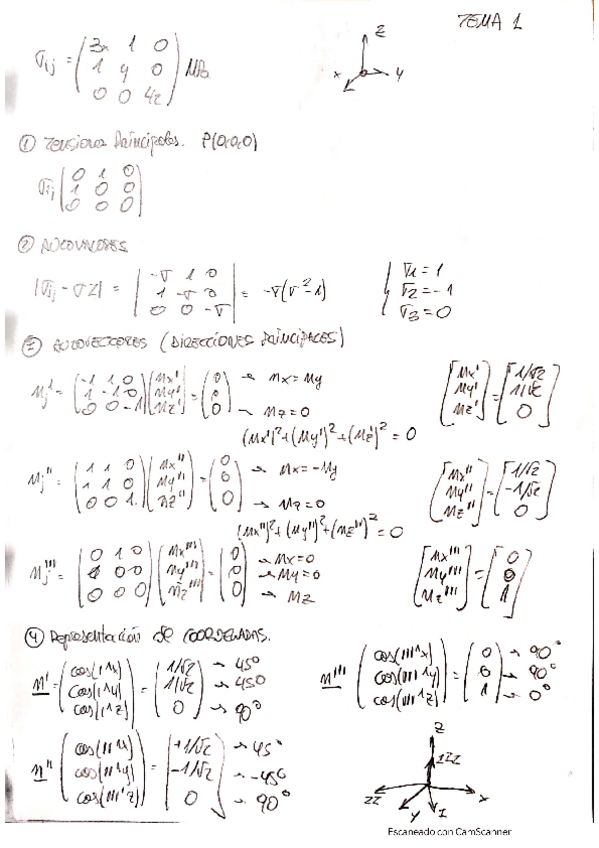 TEMA 1
σij = (3x 1 0 / 1 y 0 / 0 0 4z) MPa
z
x y
① Tensiones Principales. P(0,0,0)
σij (0 1 0 / 1 0 0 / 0 0 0)
② AUTOVALORES
|σij - σI| = |-σ 1 0 / 1 -σ 0 / 0 0 -σ| = -σ(σ²-1) { σ1 = 1 / σ2 = -1 / σ3 = 0
③ AUTOVECTORES (DIRECCIONES PRINCIPALES)
Mj' = (-1 1 0 / 1 -1 0 / 0 0 -1) (Mx' / My' / Mz') = (0 / 0 / 0) → Mx = My → Mz = 0 [Mx' / My' / Mz'] = [1/√2 / 1/√2 / 0]
(Mx')²+(My')²+(Mz')² = 0
Mj'' = (1 1 0 / 1 1 0 / 0 0 1) (Mx'' / My'' / Mz'') = (0 / 0 / 0) → Mx = -My → Mz = 0 [Mx'' / My'' / Mz''] = [1/√2 / -1/√2 / 0]
(Mx'')²+(My'')²+(Mz'')² = 0
Mj''' = (0 1 0 / 1 0 0 / 0 0 0) (Mx''' / My''' / Mz''') = (0 / 0 / 0) → Mx = 0 → My = 0 → Mz [Mx''' / My''' / Mz'''] = [0 / 0 / 1]
④ Representación de COORDENADAS.
M' = (cos(1'x) / cos(1'y) / cos(1'z)) = (1/√2 / 1/√2 / 0) → 45° → 45° → 90°
M''' (cos(111'x) / cos(111'y) / cos(111'z)) = (0 / 0 / 1) → 90° → 90° → 0°
M'' (cos(11'x) / cos(11'y) / cos(11'z)) = (+1/√2 / -1/√2 / 0) → 45° → -45° → 90°
z
III
II x
y I
Escaneado con CamScanner